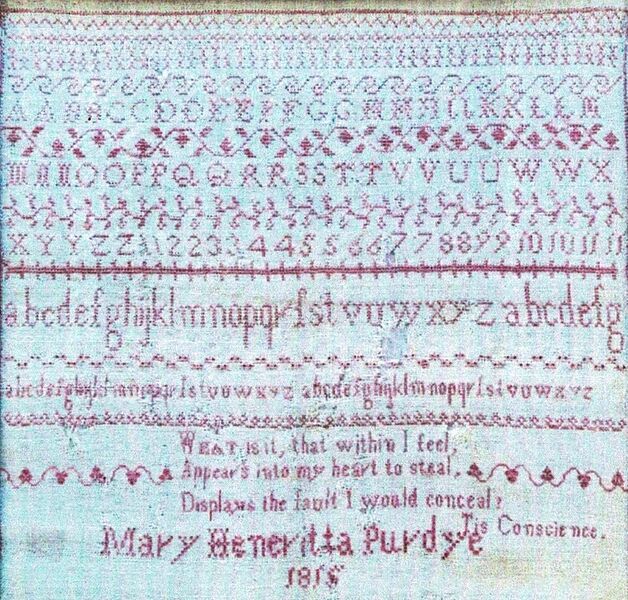 A A B B C C D D E E F F G G H H I I K K L L M
M N N O O P P Q Q R R S S T T V V U U W W X
X Y Y Z Z 1 1 2 2 3 3 4 4 5 5 6 6 7 7 8 8 9 9 10 10 11 11
abcdefghijklmnopqrſstvuwxyz abcdefg
abcdefghijklmnopqrſstvuwxyz abcdefghijklmnopqrſstvuwxyz
WEAT is it, that within I feel,
Appears into my heart to steal,
Displays the fault I would conceal?
Tis Conscience.
Mary Heneritta Purdye
1815